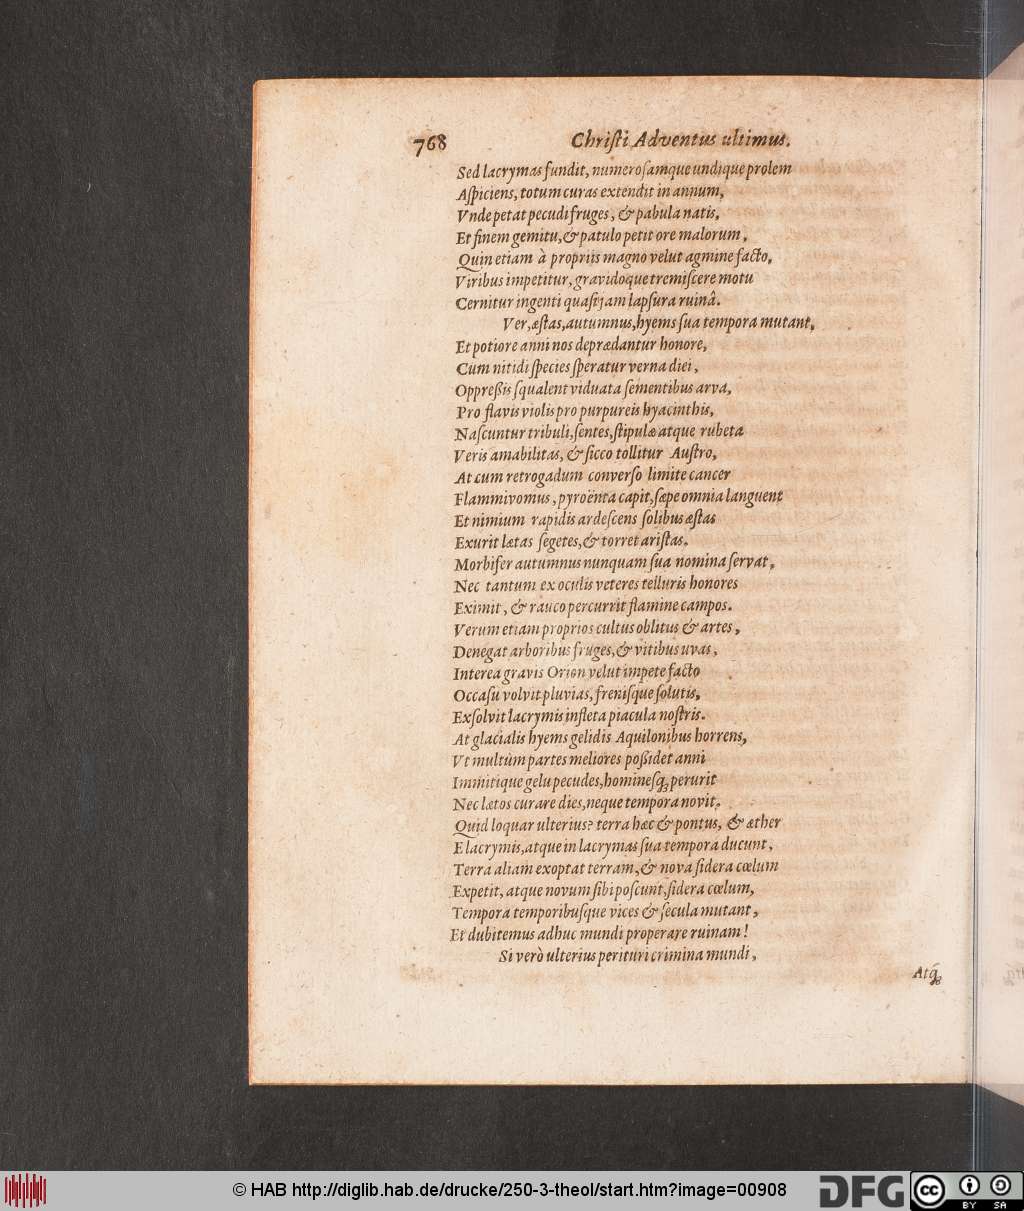 768 Chriſti Adventus ultimus.
Sed lacrymas fundit, numeroſamque undique prolem
Aſpiciens, totum curas extendit in annum,
Vnde petat pecudi fruges, & pabula natis,
Et finem gemitu, & patulo petit ore malorum,
Quin etiam à propriis magno velut agmine facto,
Viribus impetitur, gravidoque tremiſcere motu
Cernitur ingenti quaſi jam lapſura ruinâ.
Ver, æſtas, autumnus, hyems ſua tempora mutant,
Et potiore anni nos deprædantur honore,
Cum nitidi ſpecies ſperatur verna diei,
Oppreßis ſqualent viduata ſementibus arva,
Pro flavis violis pro purpureis hyacinthis,
Naſcuntur tribuli, ſentes, ſtipulæ atque rubeta
Veris amabilitas, & ſicco tollitur Auſtro,
At cum retrogadum converſo limite cancer
Flammivomus, pyroënta capit, ſæpe omnia languent
Et nimium rapidis ardeſcens ſolibus æſtas
Exurit lætas ſegetes, & torret ariſtas.
Morbifer autumnus nunquam ſua nomina ſervat,
Nec tantum ex oculis veteres telluris honores
Eximit, & rauco percurrit flamine campos.
Verum etiam proprios cultus oblitus & artes,
Denegat arboribus fruges, & vitibus uvas,
Interea gravis Orion velut impete facto
Occaſu volvit pluvias, freniſque ſolutis,
Exſolvit lacrymis infleta piacula noſtris.
At glacialis hyems gelidis Aquilonibus horrens,
Vt multùm partes meliores poßidet anni
Immitique gelu pecudes, homineſq́ꝫ perurit
Nec lætos curare dies, neque tempora novit.
Quid loquar ulterius? terra hæc & pontus, & æther
E lacrymis, atque in lacrymas ſua tempora ducunt,
Terra aliam exoptat terram, & nova ſidera cœlum
Expetit, atque novum ſibi poſcunt, ſidera cœlum,
Tempora temporibuſque vices & ſecula mutant,
Et dubitemus adhuc mundi properare ruinam!
Si verò ulterius perituri crimina mundi,
Atq́ꝫ
© HAB http://diglib.hab.de/drucke/250-3-theol/start.htm?image=00908
DFG
cc BY SA